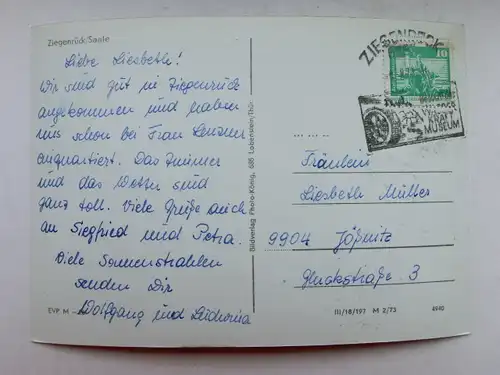 Ziegenrück/Saale
Liebe Liesbeth!
Wir sind gut in Ziegenrück
angekommen und haben
uns schon bei Frau
einquartiert. Das Zimmer
und das Wetter sind
ganz toll. Viele Grüße auch
an Siegfried und Petra.
Viele Sonnenstrahlen
senden Dir
Wolfgang und
EVP M
Bildverlag Photo-König, 685 Lobenstein/Thür.
ZIEGENRÜCK
10
KRAFT
MUSEUM
Fräulein
Liesbeth Müller
9904 Jößnitz
Gluckstraße 3
III/18/197 M 2/75 4940